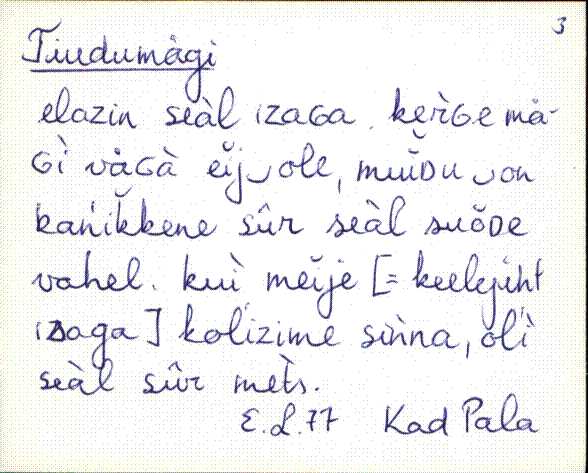 3
Tiudumägi
elazin seàl ızaGa. keŕ̀Ge mä-
Gì väGà eĭj‿ole, muŭDu‿on
kańĭkkene sûr seàl suŏDe
vahel. kuì meĭje [= keelejuht
ızaga] kolìzime sìǹna, olì
seàl sûr mèt̀s.
E.L.77 Kad Pala